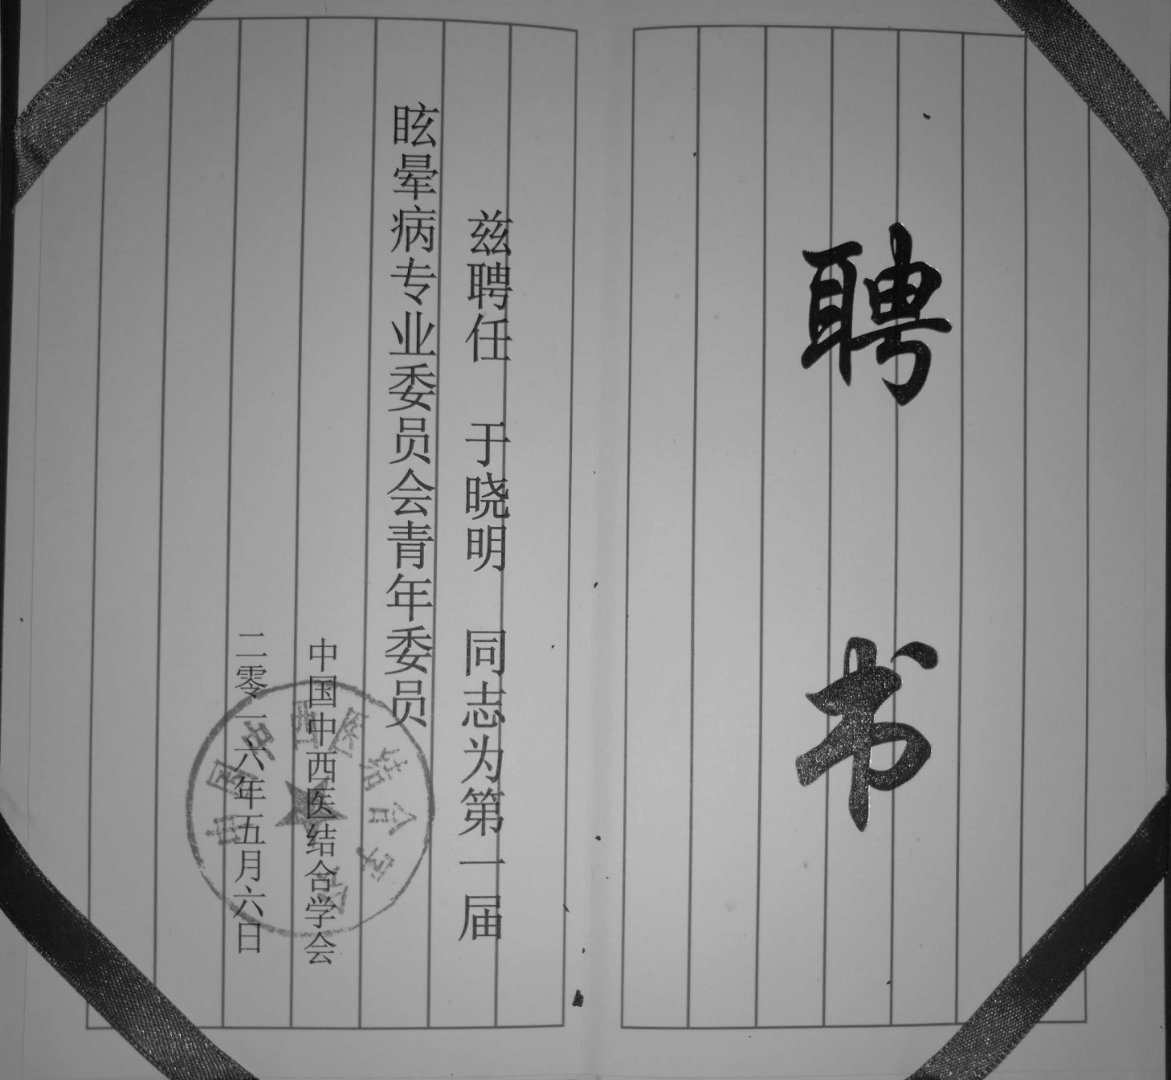 聘书
兹聘任 于晓明 同志为第一届
眩晕病专业委员会青年委员
中国中西医结合学会
二零一六年五月六日
中国中西医结合学会